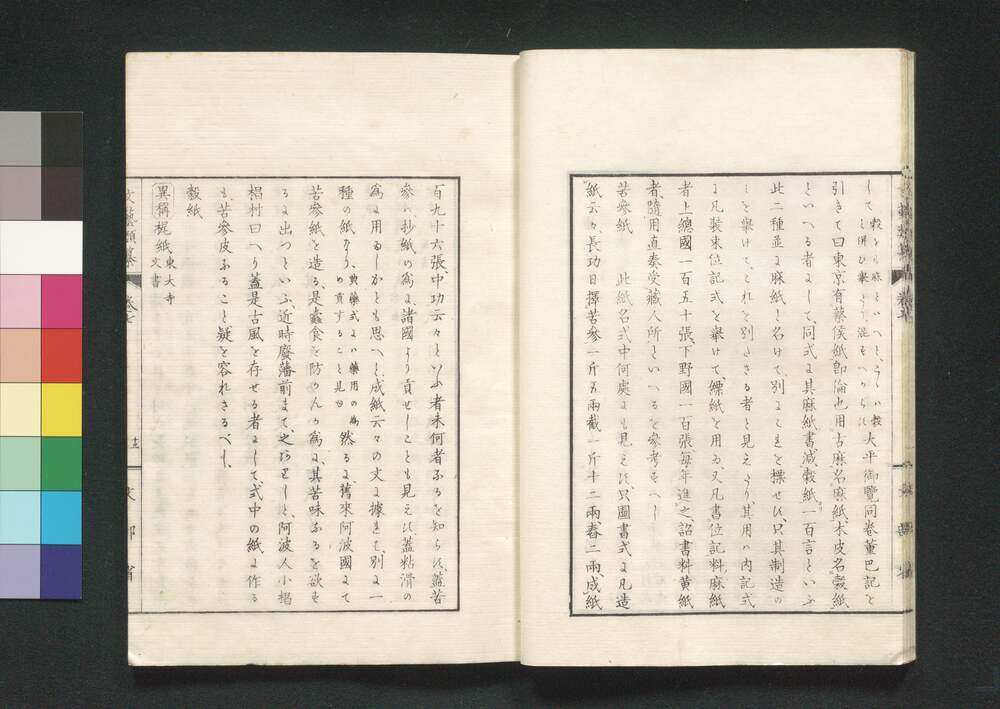 して
引きて曰東京有蔡侯紙即倫也用古麻名麻紙木皮名穀紙
といへる者にして、同式に其麻紙書減、穀紙一百言といふ
此二種並に麻紙と名けて、別に之を標せす、只其制造の
を舉けて、これを別てる者と見えたり、其用ハ内記式
に凡装束位記式を舉けて縹紙を用ゐ、又凡書位記料麻紙
者上總國一百五十張、下野國一百張、毎年進之、詔書料黄紙
者、隨用直奏受藏人所といへるを參考すへし
苦參紙　此紙名式中何處にも見えす、只圖書式に凡造
紙云々、長功日擇苦參一斤五兩截一斤十二兩舂二兩成紙
百九十六張、中功云々といふ者未何者なるを知らす、蓋苦
參ハ抄紙の爲に、諸國より貢せしことも見えす蓋粘滑の
爲に用ゐしかとも思へと、成紙云々の文に據れは、別に一
種の紙なり 典藥式にハ藥用の爲
め貢すること見ゆ 然るに舊來阿波國にて
苦參紙を造る、是蠹食を防かんか爲に、其苦味なるを欲す
るに出つといふ、近時廢藩前まて、之ありしと、阿波人小椙
椙村曰へり蓋是古風を存せる者にして、式中の紙に作る
も、苦參皮なること疑を容れさるへし、
穀紙
異稱 梶紙 東大寺
文書
文部省